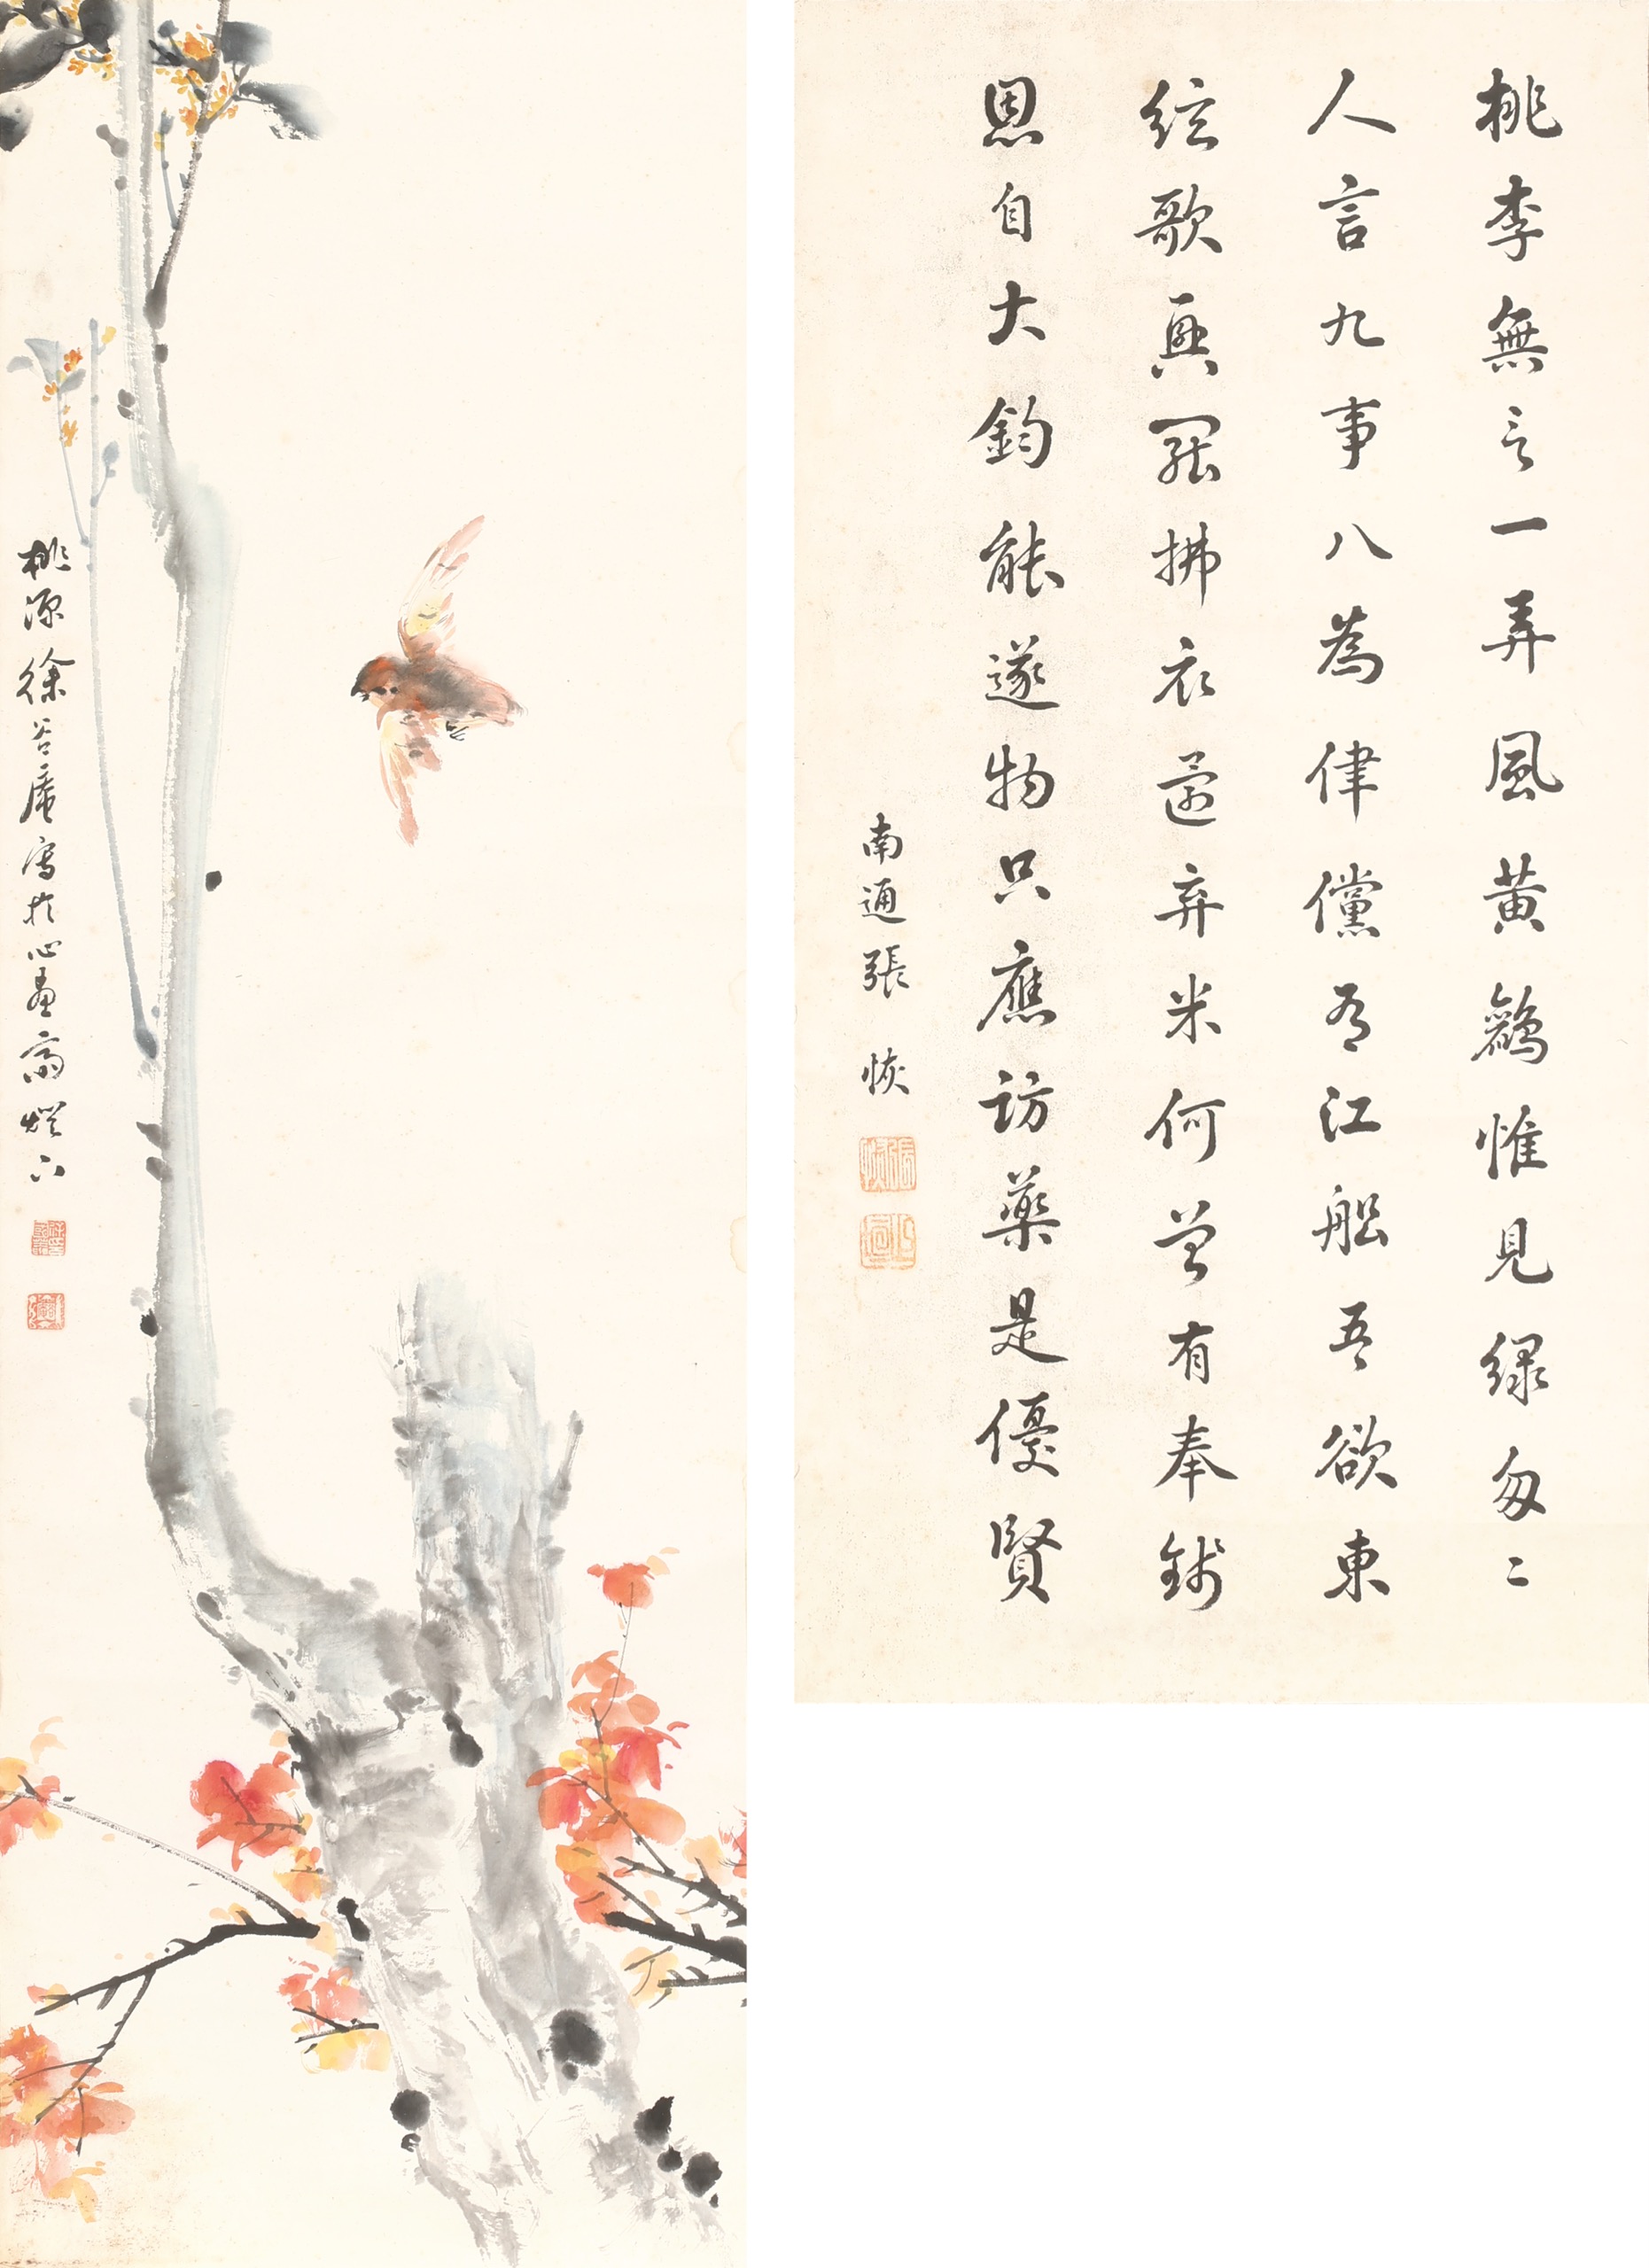 桃李無言一再風黃鸝惟見綠匆々
人言九事八為律儻有江船吾欲東
絃歌興罷拂衣還弃米何曾有奉錢
恩自大鈞能遂物只應訪藥是優賢
南通張恢
張恢
桃源徐谷庵寫於心畫齋燈下